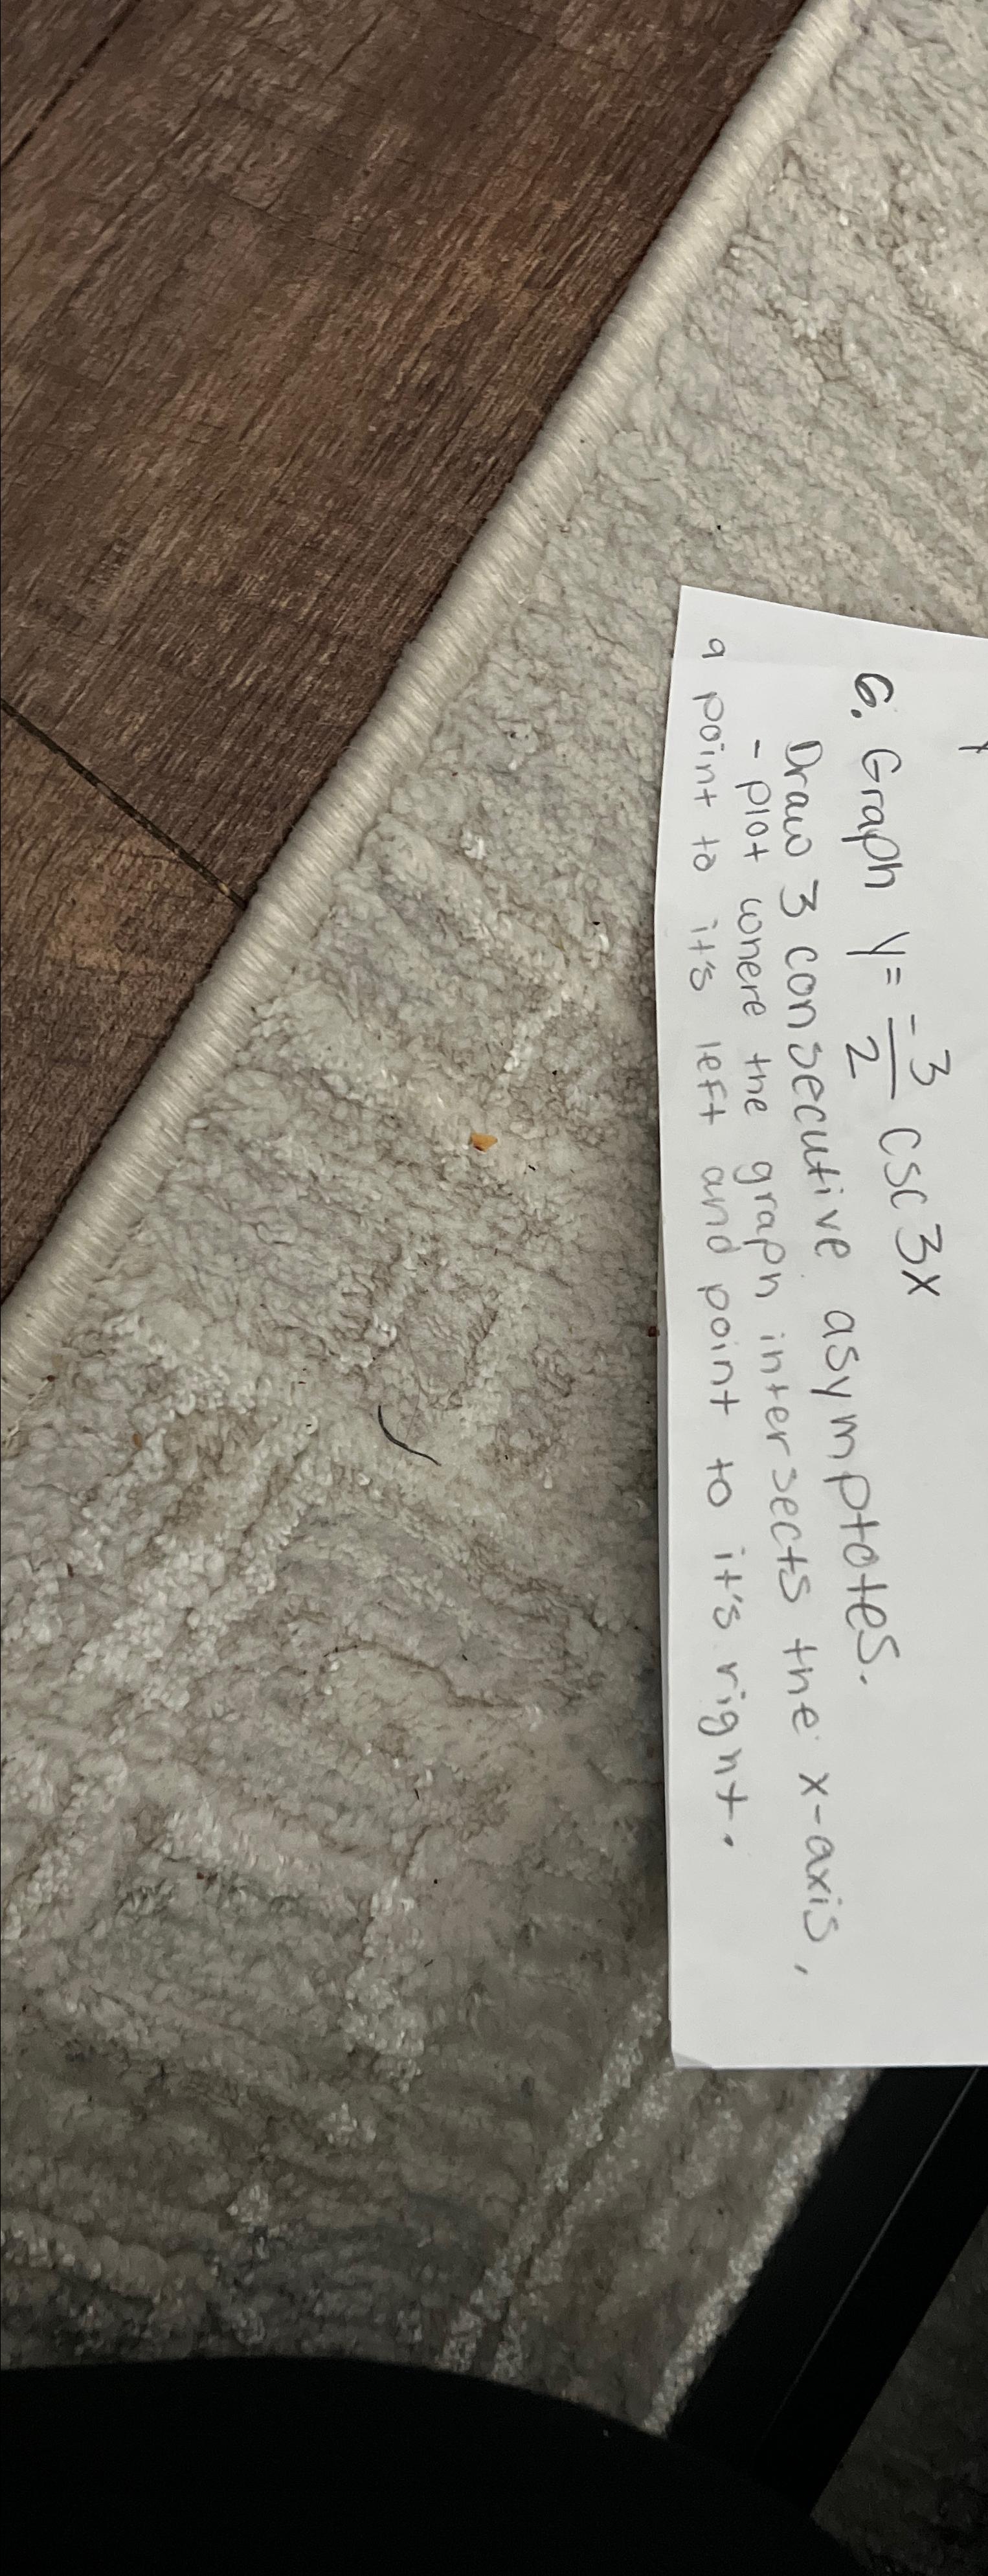 6. Graph y = -3/2 csc 3x
Draw 3 consecutive asymptotes.
- plot where the graph intersects the x-axis,
a point to it's left and point to it's right.